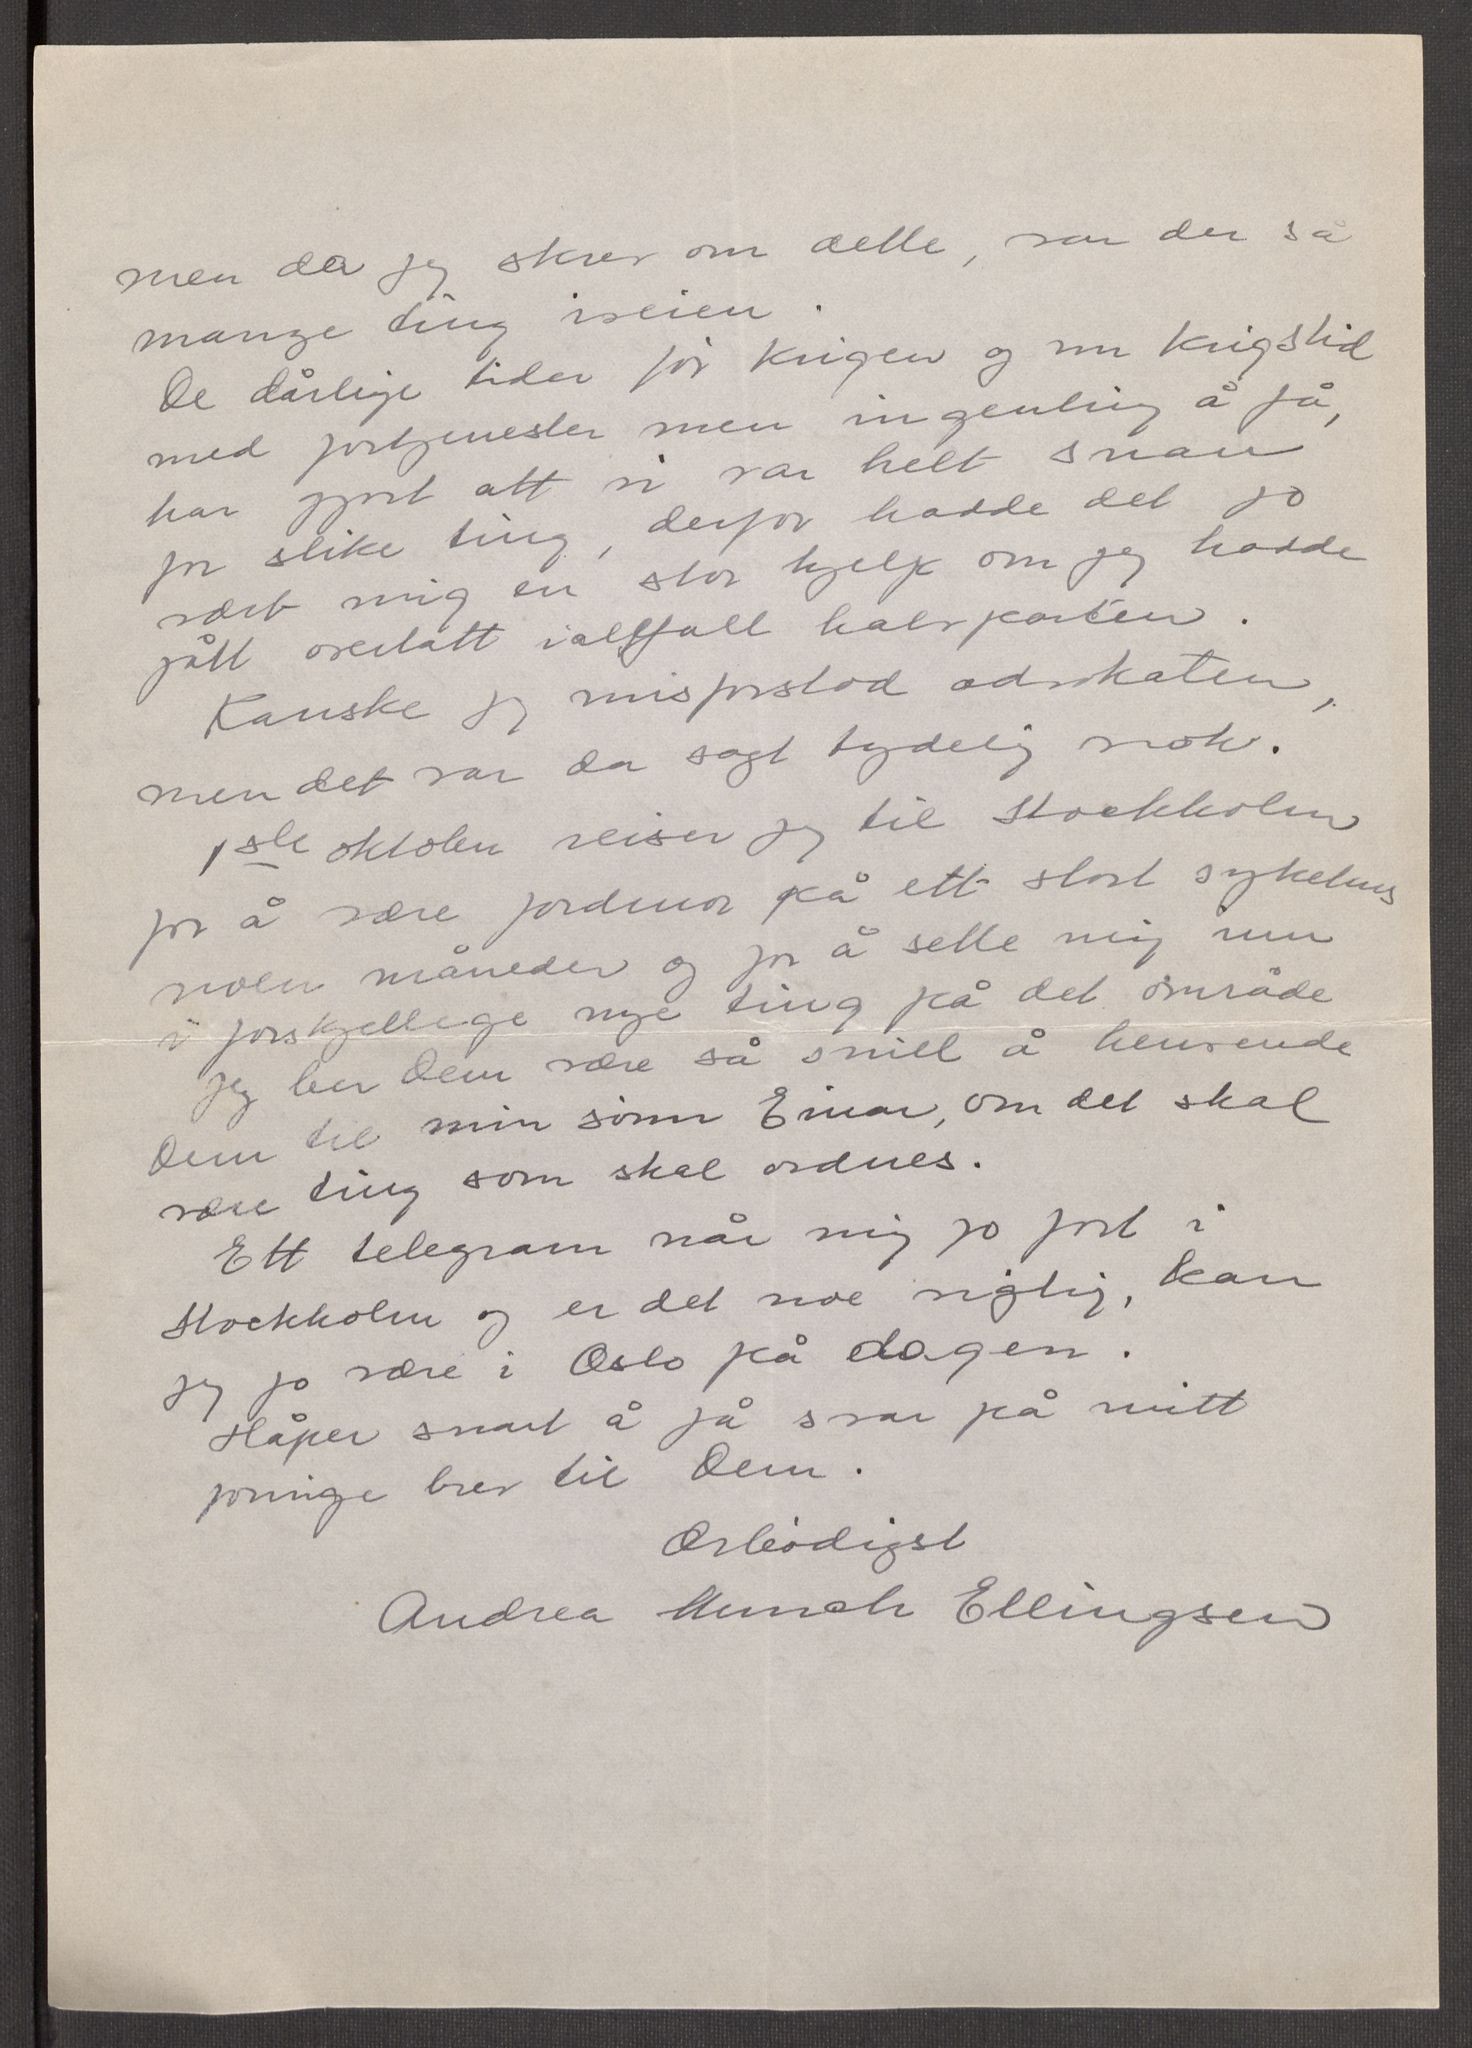 men da jeg skrev om dette, var der så
mange ting iveien.
De dårlige tider før krigen og nu krigstid
med fortjenester men ingenting å få,
har gjort att vi var helt snau
for slike ting, derfor hadde det jo
vært mig en stor hjelp om jeg hadde
fått overlatt ialffall halvparten.
Kanske jeg misforstod advokaten,
men det var da sagt tydelig nok.
1ste oktober reiser jeg til Stockholm
for å være jordmor på ett stort sykehus
noen måneder og for å sette mig inn
i forskjellige nye ting på det område
Jeg ber Dem være så snill å henvende
Dem til min sønn Einar, om det skal
være ting som skal ordnes.
Ett telegram når mig jo fort i
Stockholm og er det noe vigtig, kan
jeg jo være i Oslo på dagen.
Håper snart å få svar på mitt
forrige brev til Dem.
Ærbødigst
Andrea Munch Ellingsen